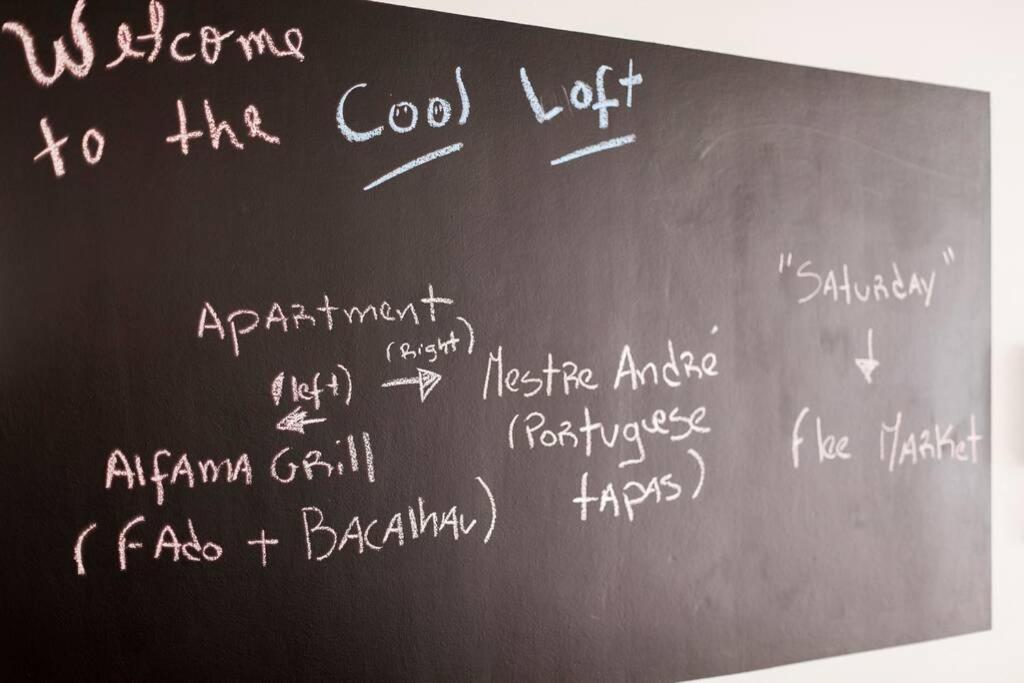 Welcome
to the Cool Loft
Apartment
(left)
(Right)
Alfama Grill
(Fado + Bacalhau)
Mestre André
(Portuguese
tapas)
"Saturday"
flee Market